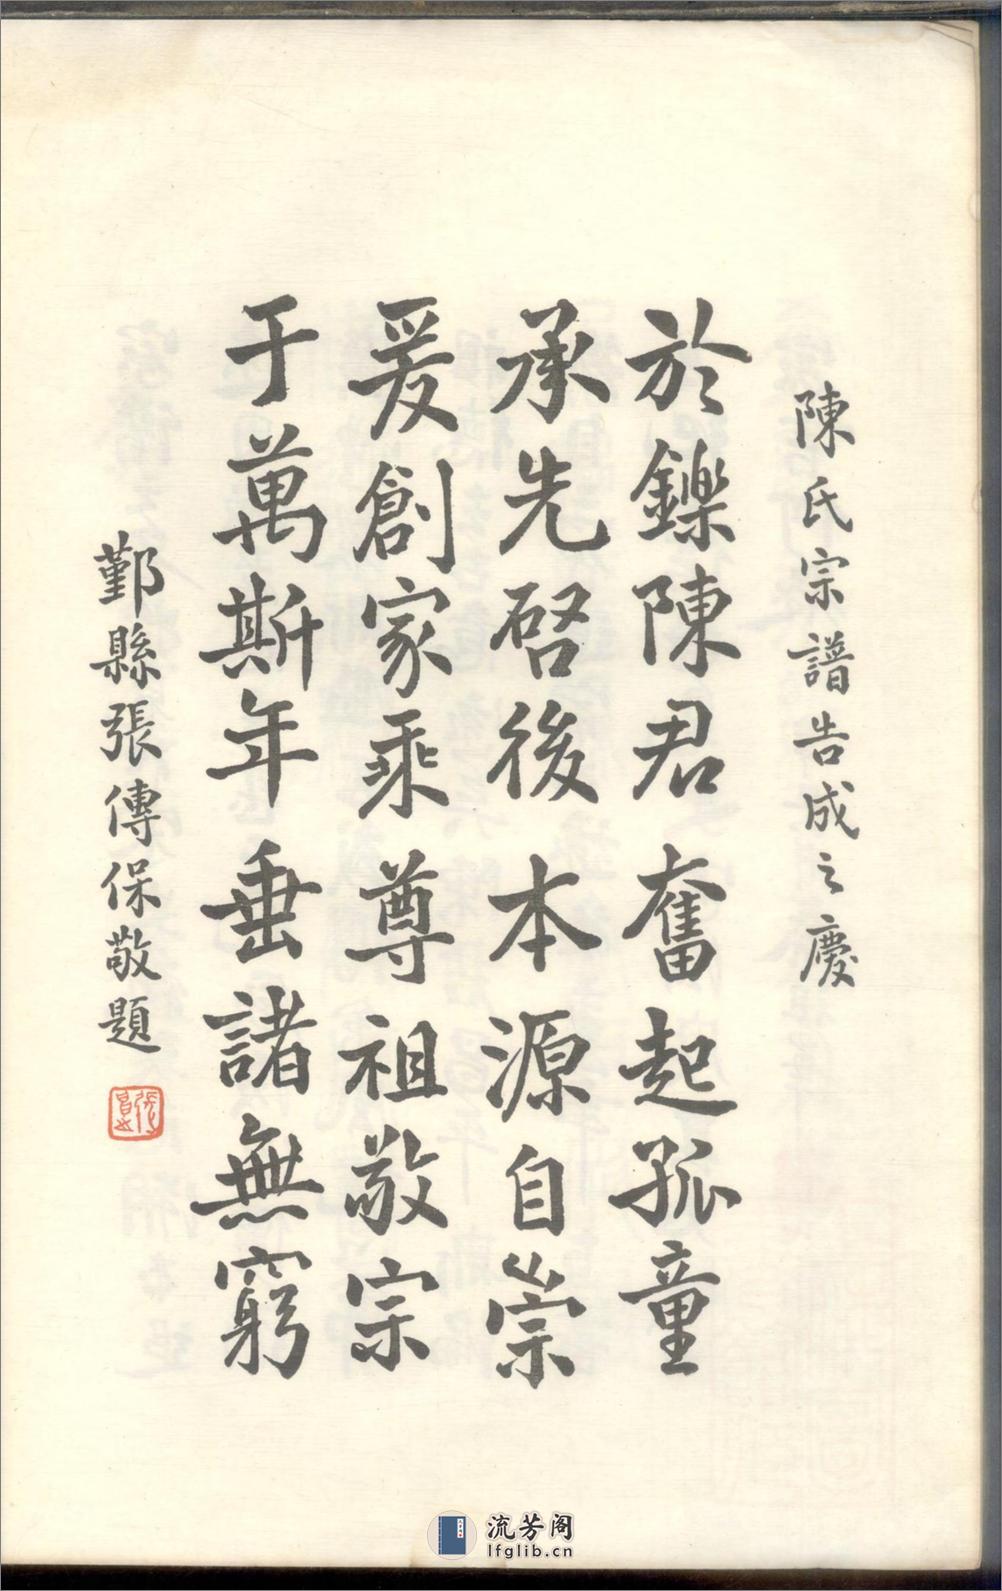 陳氏宗譜告成之慶
於鑠陳君奮起孤童
承先啓後本源自崇
爰創家乘尊祖敬宗
于萬斯年垂諸無窮
鄞縣張傳保敬題
流芳阁
lfglib.cn